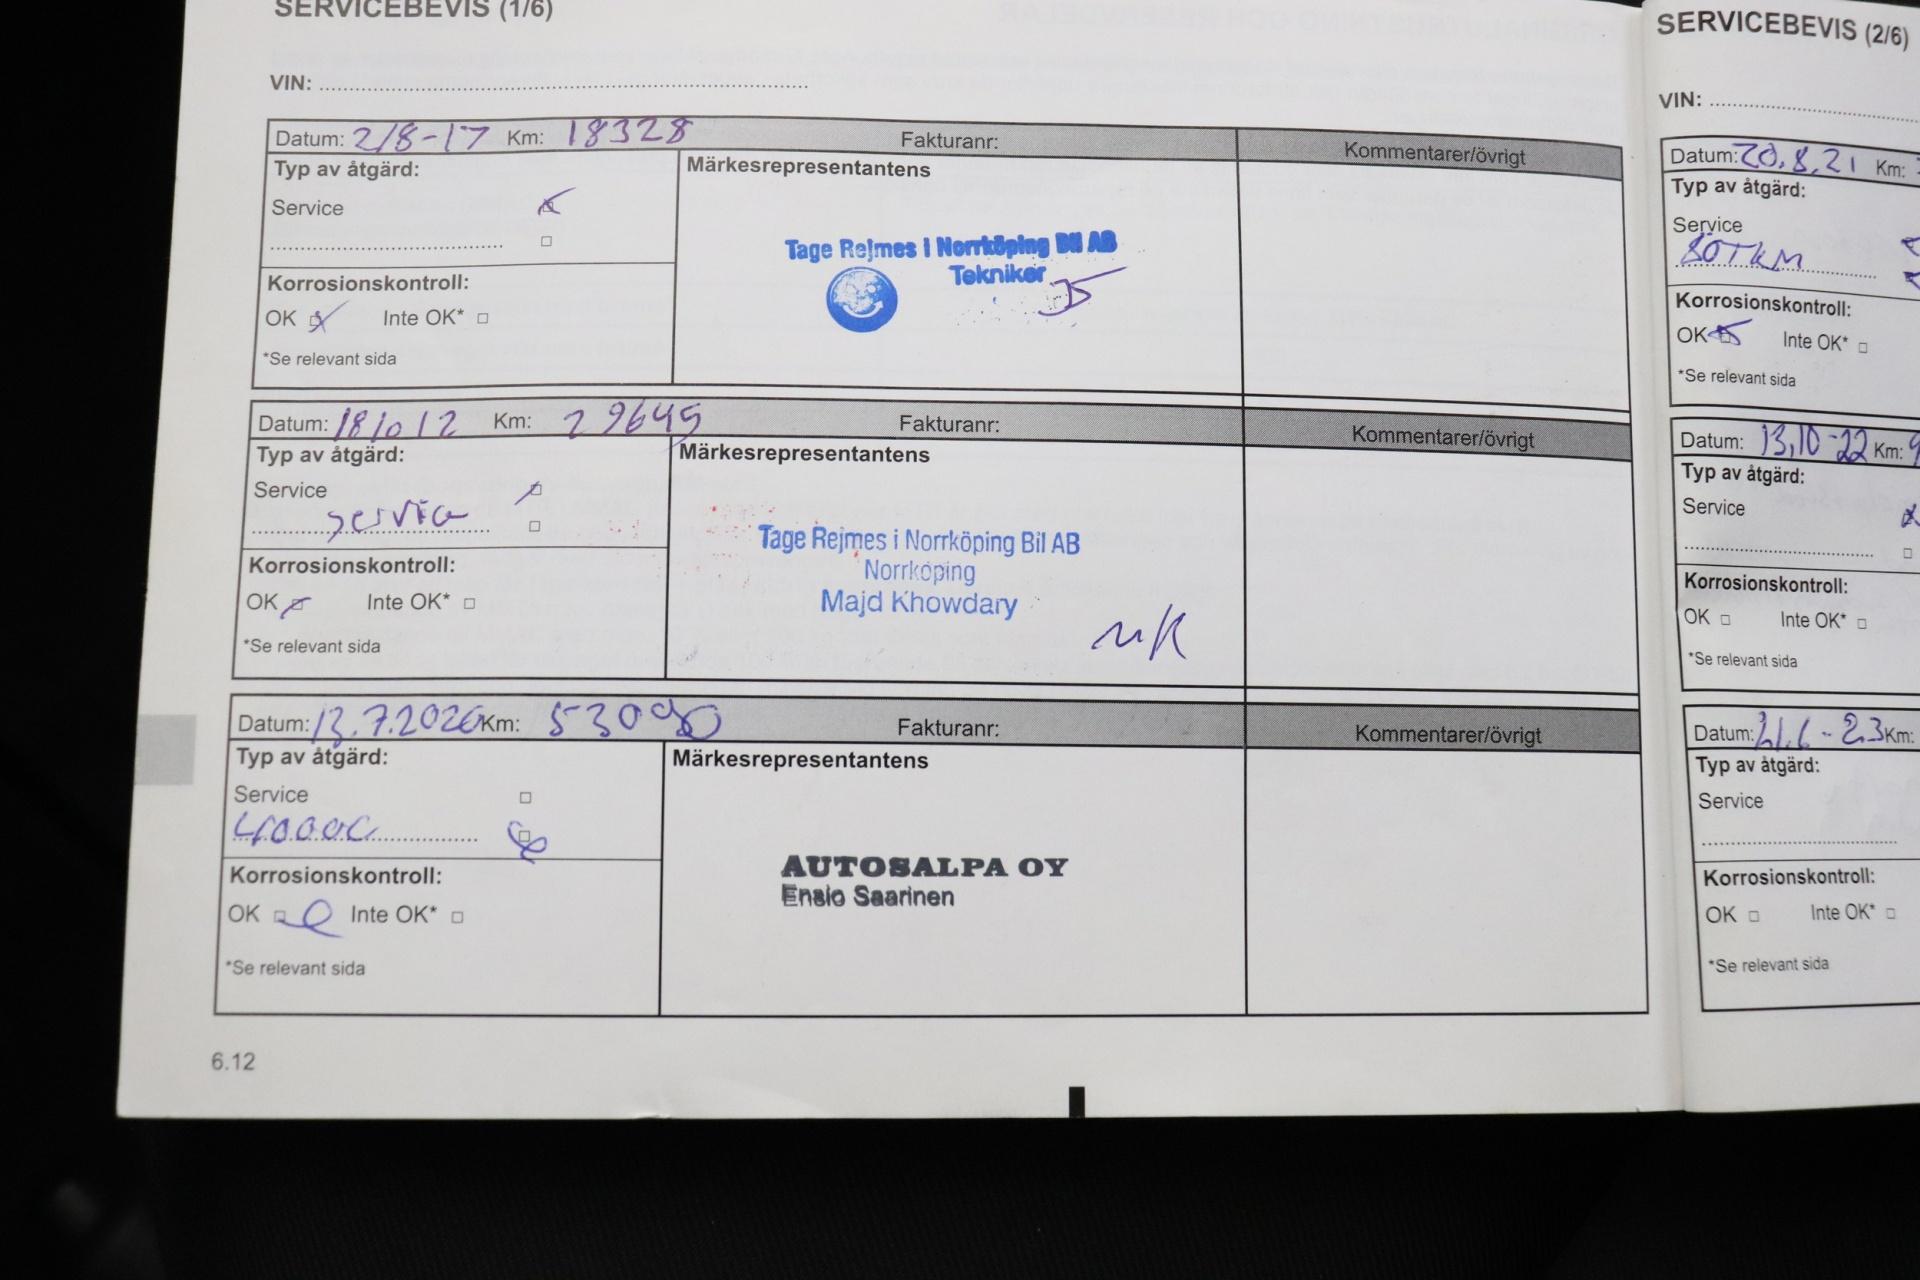 SERVICEBEVIS (1/6)
VIN:
Datum: 2/8-17 Km: 18328 Fakturanr: Kommentarer/övrigt
Typ av åtgärd: Märkesrepresentantens
Service
Tage Rejmes i Norrköping Bil AB
Tekniker
Korrosionskontroll:
OK Inte OK*
*Se relevant sida
Datum: 181012 Km: 29645 Fakturanr: Kommentarer/övrigt
Typ av åtgärd: Märkesrepresentantens
Service
service
Tage Rejmes i Norrköping Bil AB
Norrköping
Majd Khowdary
MK
Korrosionskontroll:
OK Inte OK*
*Se relevant sida
Datum: 13.7.2020 Km: Fakturanr: Kommentarer/övrigt
Typ av åtgärd: Märkesrepresentantens
Service
40000
AUTOSALPA OY
Ensio Saarinen
Korrosionskontroll:
OK Inte OK*
*Se relevant sida
6.12
SERVICEBEVIS (2/6)
VIN:
Datum: 20.8.21 Km:
Typ av åtgärd:
Service
80TKM
Korrosionskontroll:
OK Inte OK*
*Se relevant sida
Datum: 13,10-22 Km: 9
Typ av åtgärd:
Service
Korrosionskontroll:
OK Inte OK*
*Se relevant sida
Datum: 21.6-23 Km:
Typ av åtgärd:
Service
Korrosionskontroll:
OK Inte OK*
*Se relevant sida